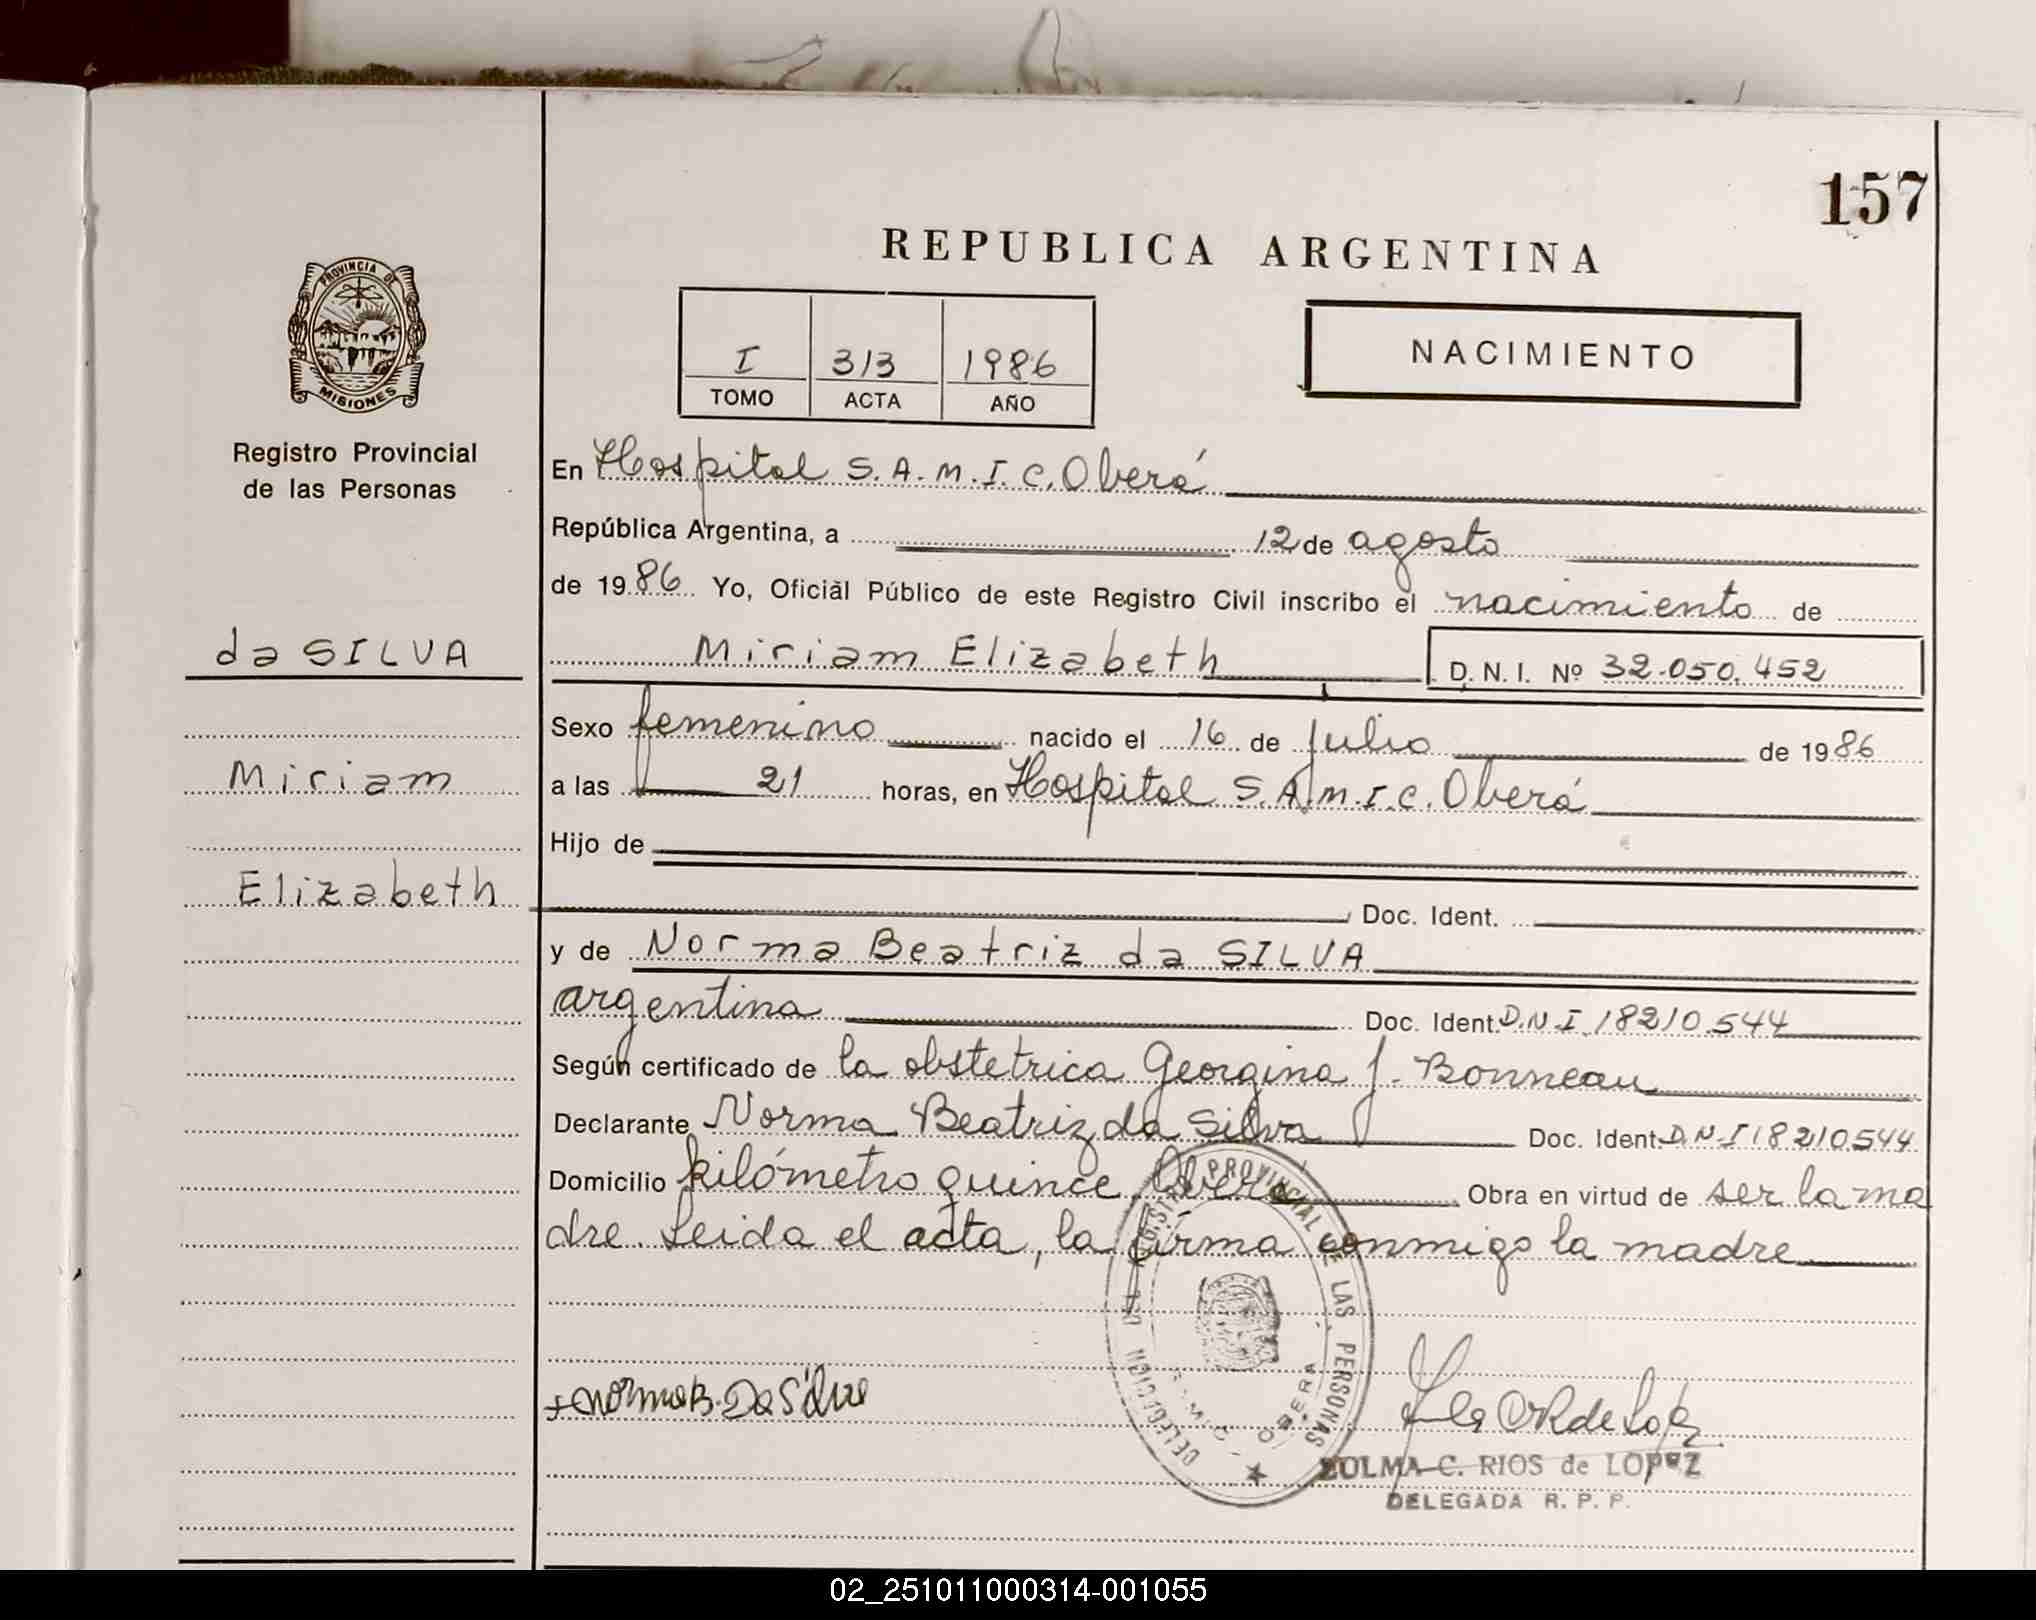 157
REPUBLICA ARGENTINA
PROVINCIA DE
MISIONES
I 313 1986
TOMO ACTA AÑO
NACIMIENTO
Registro Provincial
de las Personas
En Hospital S.A.M.I.C. Oberá
República Argentina, a 12 de agosto
de 1986 Yo, Oficial Público de este Registro Civil inscribo el nacimiento de
da SILVA
Miriam Elizabeth D. N. I. Nº 32.050.452
Sexo femenino nacido el 16 de julio de 1986
Miriam
a las 21 horas, en Hospital S.A.M.I.C. Oberá
Hijo de
Elizabeth
Doc. Ident.
y de Norma Beatriz da SILVA
argentina Doc. Ident. D.N.I. 18210.544
Según certificado de la obstetrica Georgina J. Bonneau
Declarante Norma Beatriz da Silva Doc. Ident. D.N.I 18210.544
Domicilio kilómetro quince, Oberá Obra en virtud de ser la ma
dre. Leida el acta, la firma conmigo la madre
DELEGACION DEL REGISTRO PROVINCIAL DE LAS PERSONAS
OBERA
Norma B. Da Silva
ZOLMA C. RIOS de LOPEZ
DELEGADA R. P. P.
02_251011000314-001055